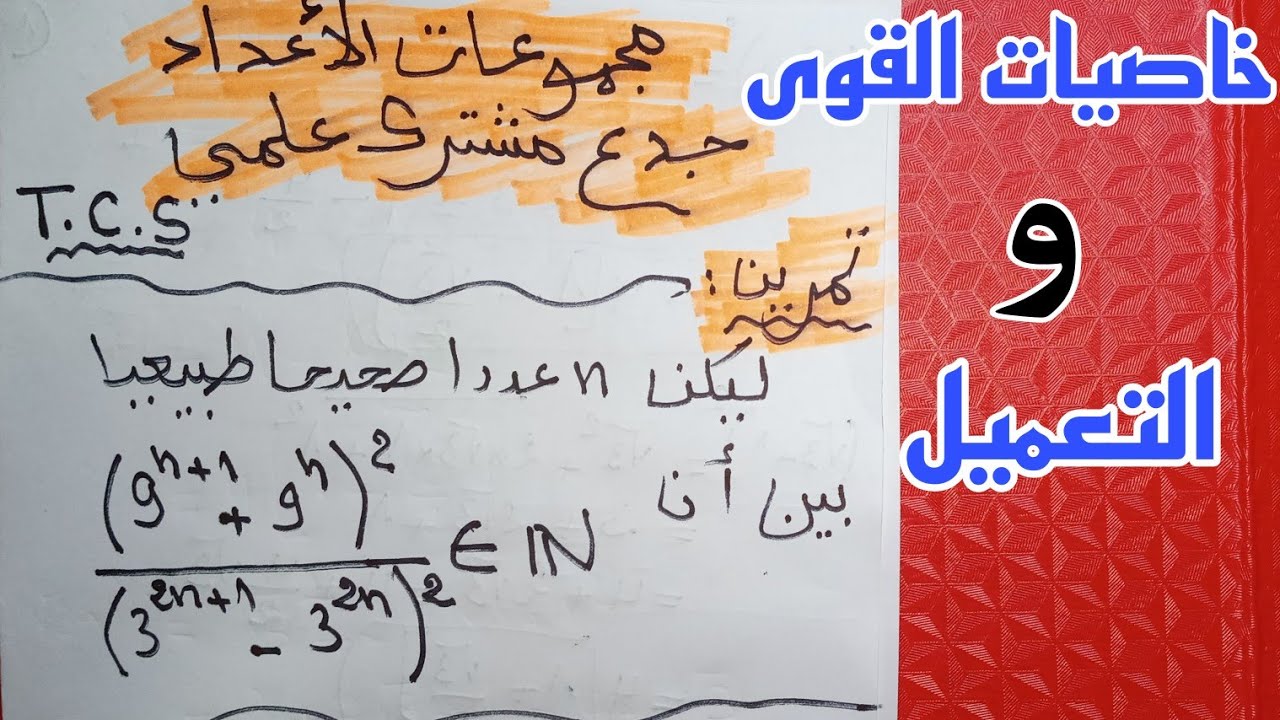 خاصيات القوى
و
التعميل
مجموعات الأعداد
جدع مشترك علمي
T.C.S
تمرين:
ليكن n عددا صحيحا طبيعيا
بين أن (9^{n+1} + 9^n)^2 / (3^{2n+1} - 3^{2n})^2 ∈ IN